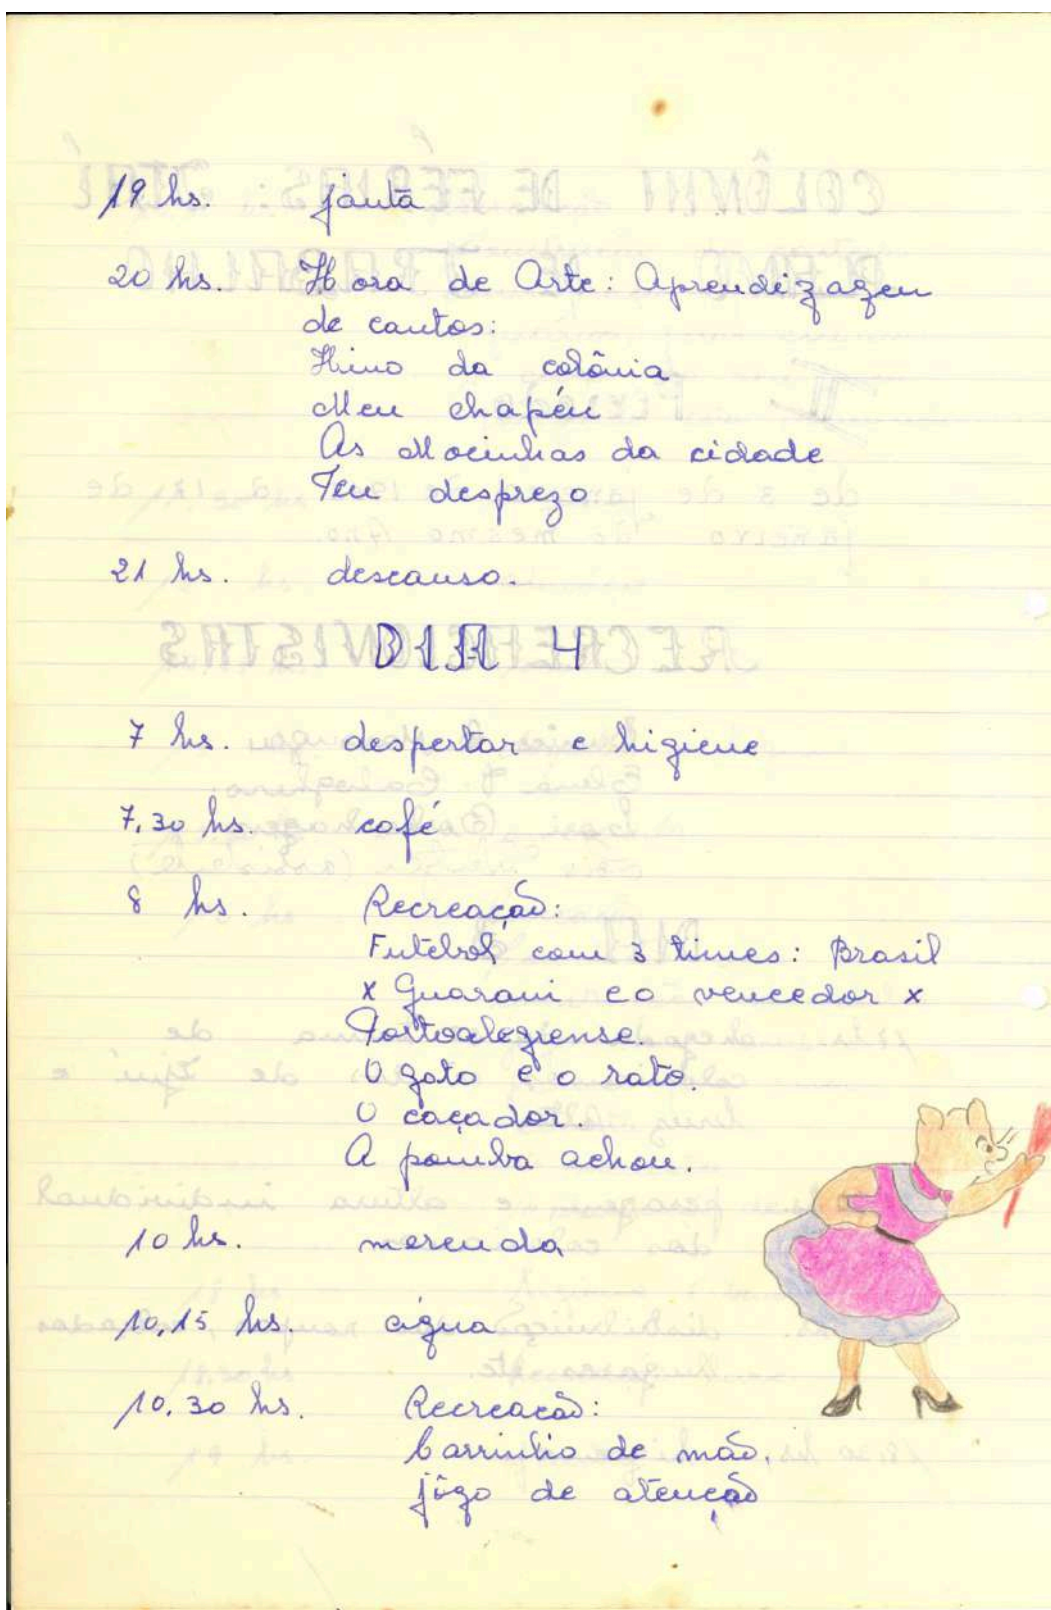 19 hs. janta
20 hs. Hora de Arte: Aprendizagem
de cantos:
Hino da colônia
Meu chapéu
As Mocinhas da cidade
Teu desprezo
21 hs. descanso.
DIA 4
7 hs. despertar e higiene
7,30 hs. café
8 hs. Recreação:
Futebol com 3 times: Brasil
x Guarani e o vencedor x
Portoalegrense.
O gato e o rato.
O caçador.
A pomba achou.
10 hs. merenda
10,15 hs. água
10.30 hs. Recreação:
Carrinho de mão.
jôgo de atenção